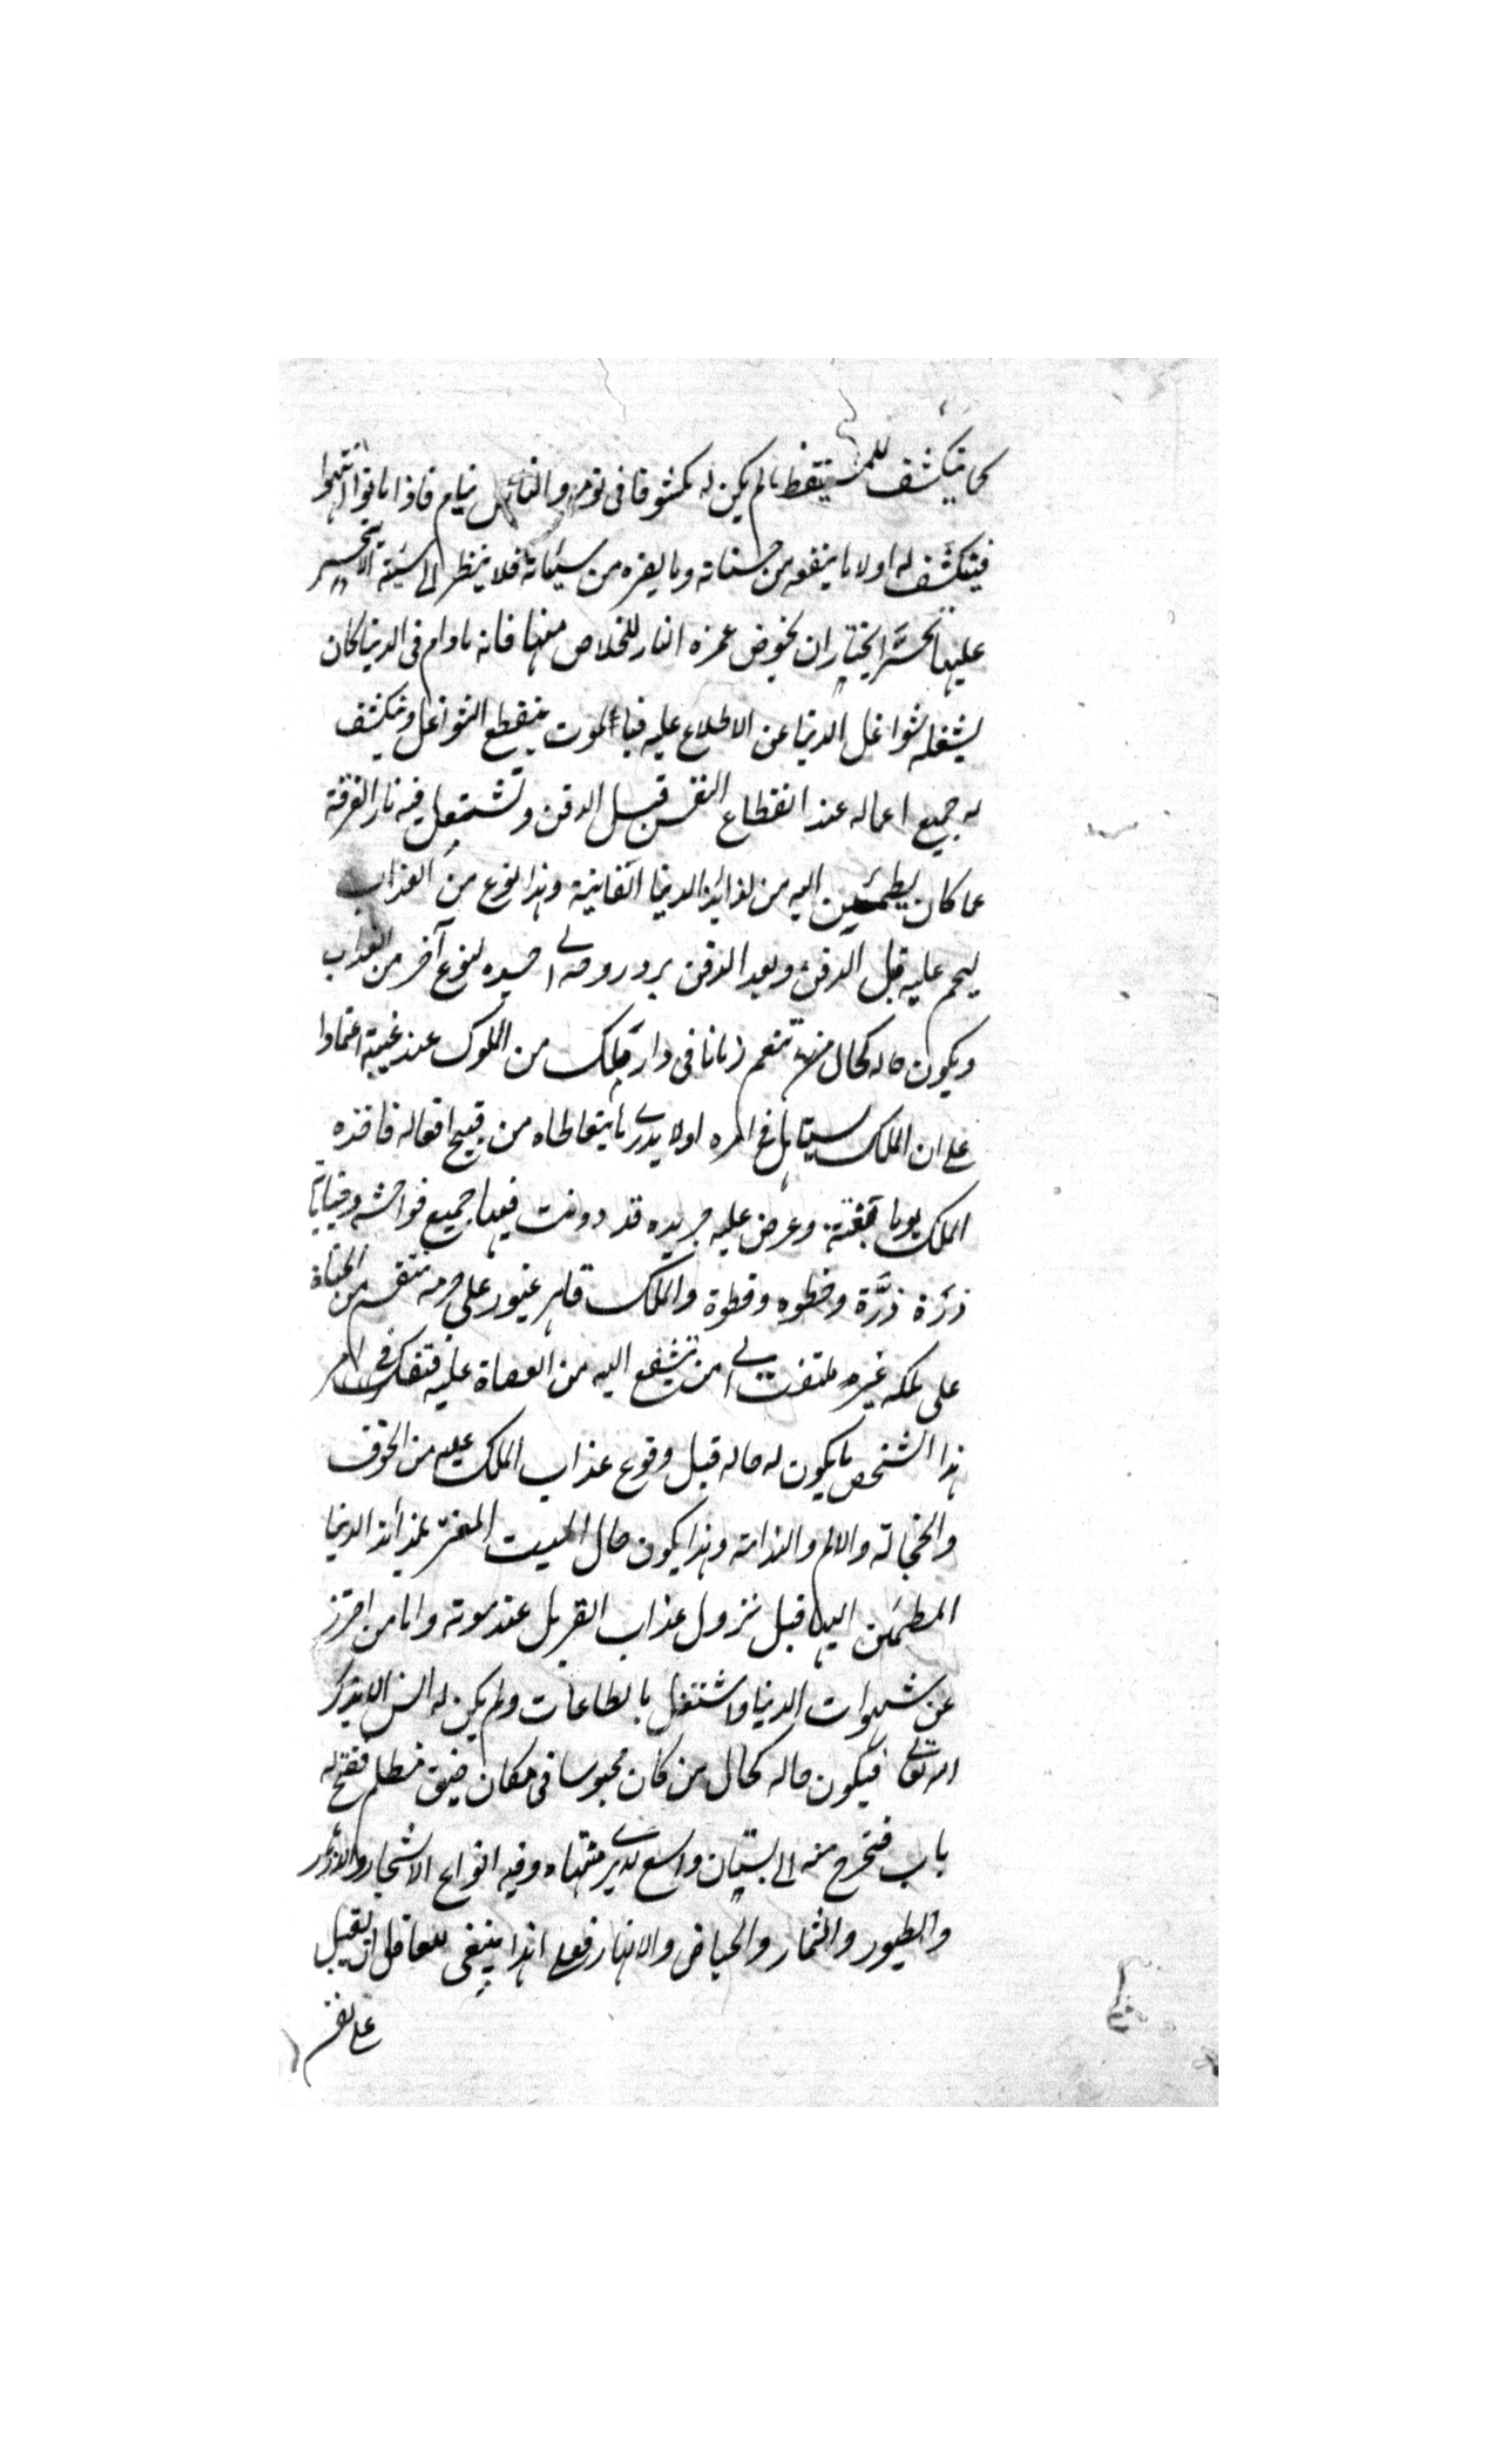 كما ينكشف للمستيقظ ما لم يكن له مكشوفا فى نومه والناس نيام فاذا ماتوا انتبهوا
فينكشف له اولا ما ينفعه من حسناته وما يضره من سيئاته فلا ينظر الى سيئة الا يتحسر
عليها تحسّرا يختار ان يخوض غمرة النار للخلاص منها فانه مادام فى الدنيا كان
يشغله شواغل الدنيا عن الاطلاع عليه فباء الموت ينقطع الشواغل وينكشف
له جميع اعماله عند انقطاع النفس قبل الدفن وتشتعل فيه نار الفرقة
عما كان يطمئن اليه من لذائذ الدنيا الفانية وهذا نوع من العذاب
يهجم عليه قبل الدفن وبعد الدفن يرد روحه الى جسده لنوع آخر من العذاب
ويكون حاله كحال من تنعم زمانا فى دار ملك من الملوك عند غيبته اعتمادا
على ان الملك يتساهل فى امره او لا يدرى ما يتعاطاه من قبيح افعاله فاخذه
الملك يوما بغتة وعرض عليه جريدة قد دونت فيها جميع فواحشه وجناياته
ذرّة ذرّة وخطوه وخطوة والملك قاهر غيور على حرمه منتقم من الجناة
على ملكه غير ملتفت الى من تشفع اليه من العصاة عليه فتفكر فى امر
هذا الشخص ما يكون له حاله قبل وقوع عذاب الملك عليه من الخوف
والخجالة والالم والندامة وهذا يكون حال الميت المغتر بلذائذ الدنيا
المطمئن اليها قبل نزول عذاب القبر بل عند موته واما من احترز
عن شهوات الدنيا واشتغل بالطاعات ولم يكن له انس الا بذكر
الله تعالى فيكون حاله كحال من كان محبوسا فى مكان ضيق مظلم ففتح له
باب فتخرج منه الى بستان واسع لا يدرى منتهاه وفيه انواع الاشجار والازهار
والطيور والثمار والحياض والانهار فعلى هذا ينبغى للعاقل ان يقبل
على نفسه